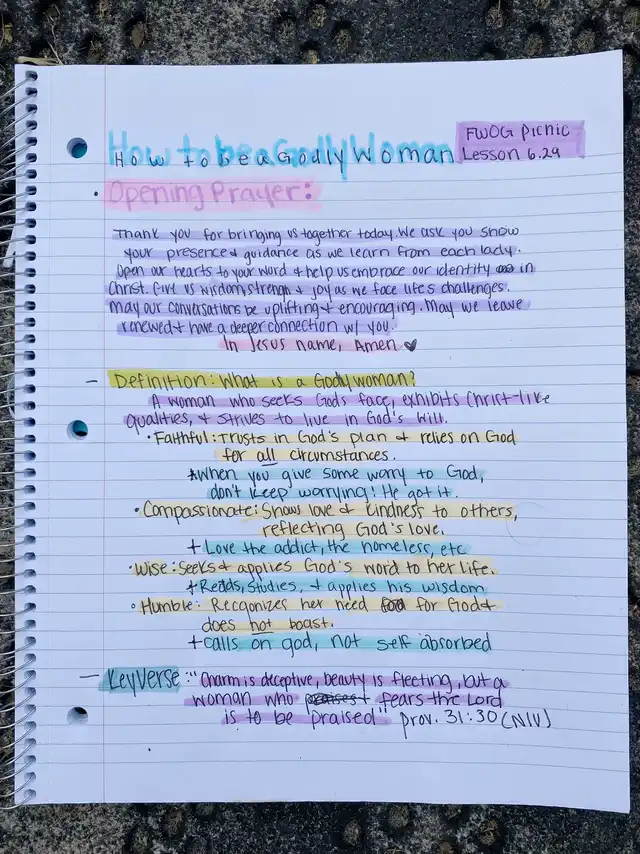 How to be a Godly Woman
FWOG Picnic
Lesson 6.29
• Opening Prayer:
Thank you for bringing us together today. We ask you show
your presence & guidance as we learn from each lady.
Open our hearts to your word & help us embrace our identity in
Christ. Give us wisdom, strength & joy as we face life's challenges.
May our conversations be uplifting & encouraging. May we leave
renewed & have a deeper connection w/ you.
In Jesus name, Amen ♥
- Definition: What is a Godly woman?
A woman who seeks God's face, exhibits Christ-like
qualities, & strives to live in God's will.
• Faithful: Trusts in God's plan & relies on God
for all circumstances.
*When you give some worry to God,
don't keep worrying! He got it.
• Compassionate: Shows love & kindness to others,
reflecting God's love.
+ Love the addict, the homeless, etc
• Wise: Seeks & applies God's word to her life.
+ Reads, studies, & applies his wisdom
• Humble: Recgonizes her need for God &
does not boast.
+ calls on god, not self absorbed
- Key Verse: "Charm is deceptive, beauty is fleeting, but a
woman who praises+ fears the Lord
is to be praised" Prov. 31:30 (NIV)